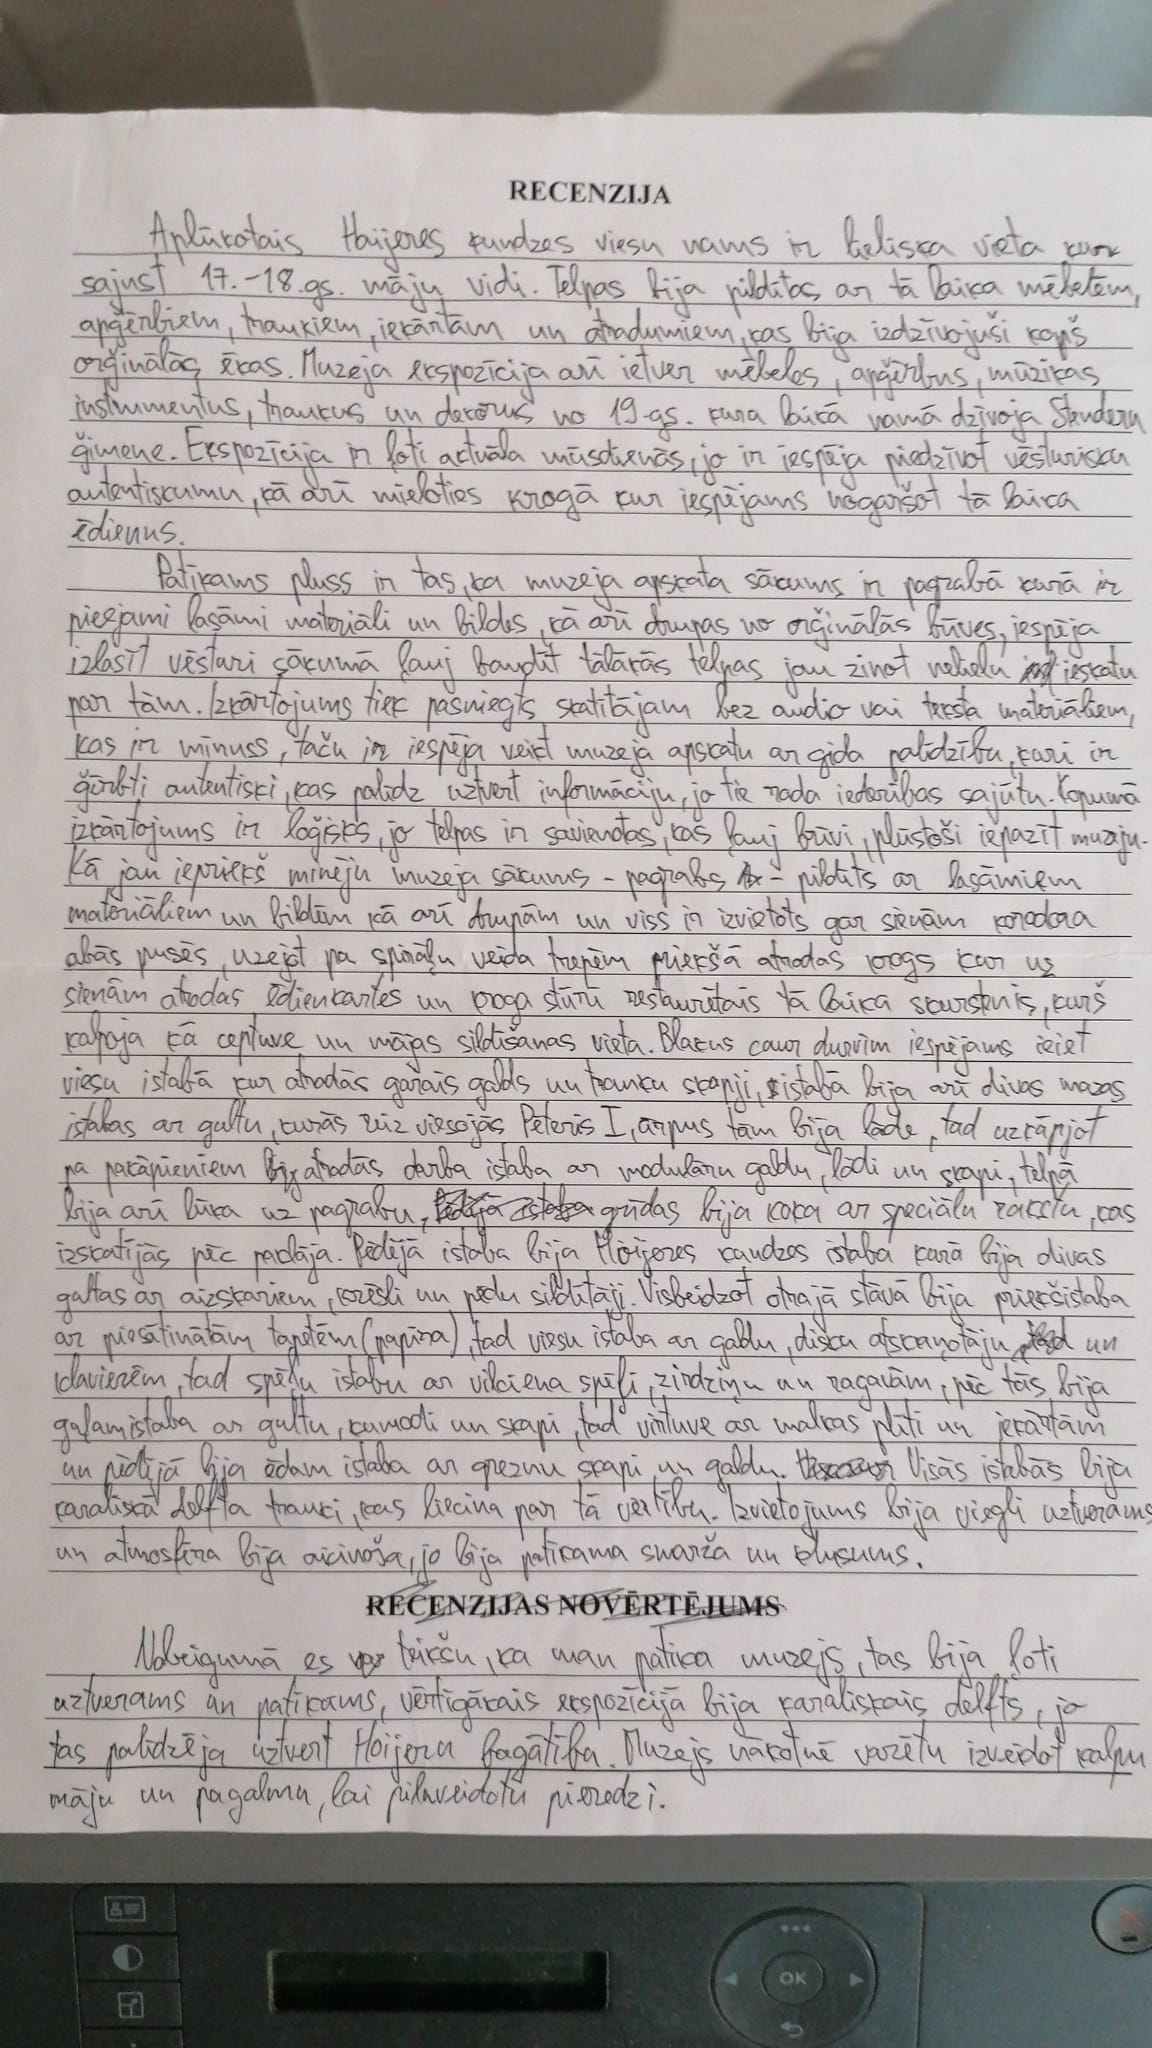 RECENZIJA
Aplūkotais Haijeres kundzes viesu nams ir lieliska vieta kur
sajust 17.-18.gs. māju vidi. Telpas bija pildītas ar tā laika mēbelēm,
apģērbiem, traukiem, iekārtām un atradumiem, kas bija izdzīvojuši kopš
orģinālās ēkas. Muzeja ekspozīcija arī ietver mēbeles, apģērbus, mūzikas
instrumentus, traukus un dekorus no 19.gs. kura laikā namā dzīvoja Stenderu
ģimene. Ekspozīcija ir ļoti actuāla mūsdienās, jo ir iespēja piedzīvot vēsturisku
autentiskumu, kā arī mieloties krogā kur iespējams nogaršot tā laika
ēdienus.
Patīkams pluss ir tas, ka muzeja apskata sākums ir pagrabā kurā ir
pieejami lasāmi materiāli un bildes, kā arī drupas no orģinālās būves, iespēja
izlasīt vēsturi sākumā ļauj baudīt tālākās telpas jau zinot nelielu ieskatu
par tām. Izkārtojums tiek pasniegts skatītājam bez audio vai teksta materiāliem,
kas ir mīnuss, taču ir iespēja veikt muzeja apskatu ar gida palīdzību, kuri ir
ģērbti autentiski, kas palīdz uztvert informāciju, jo tie rada iederības sajūtu. Kopumā
izkārtojums ir loģisks, jo telpas ir savienotas, kas ļauj brīvi, plūstoši iepazīt muzeju.
Kā jau iepriekš minēju muzeja sākums - pagrabs - pildīts ar lasāmiem
materiāliem un bildēm kā arī drupām un viss ir izvietots gar sienām koredora
abās pusēs, uzejot pa spirāļu veida trepēm priekšā atrodas krogs kur uz
sienām atrodas ēdienkartes un kroga stūrī restaurētais tā laika skurstenis, kurš
kalpoja kā ceptuve un mājas sildīšanas vieta. Blakus caur durvīm iespējams ieiet
viesu istabā kur atradās garais galds un trauku skapji, istabā bija arī divas mazas
istabas ar gultu, kurās reiz viesojās Pēteris I, ārpus tām bija lāde, tad uzkāpjot
pa pakāpieniem atradās darba istaba ar modulāru galdu, lādi un skapi, telpā
bija arī lūka uz pagrabu, grīdas bija koka ar speciālu rakstu, kas
izskatījās pēc paklāja. Pēdējā istaba bija Hoijeres kundzes istaba kurā bija divas
gultas ar aizskariem, krēsli un pēdu sildītāji. Visbeidzot otrajā stāvā bija priekšistaba
ar piesātinātām tapetēm (papīra), tad viesu istaba ar galdu, disku atskaņotāju un
klavierēm, tad spēļu istabu ar vilciena spēli, zirdziņu un ragavām, pēc tās bija
guļamistaba ar gultu, kumodi un skapi, tad virtuve ar malkas plīti un iekārtām
un pēdējā bija ēdam istaba ar greznu skapi un galdu. Visās istabās bija
karaliskā delfta trauki, kas liecina par tā vērtību. Izvietojums bija viegli uztverams
un atmosfēra bija aicinoša, jo bija patīkama smarža un klusums.
RECENZIJAS NOVĒRTĒJUMS
Nobeigumā es teikšu, ka man patika muzejs, tas bija ļoti
uztverams un patīkams, vērtīgākais ekspozīcijā bija karaliskais delfts, jo
tas palīdzēja uztvert Hoijeru bagātību. Muzejs nākotnē varētu izveidot kalpu
māju un pagalmu, lai pilnveidotu pieredzi.
OK